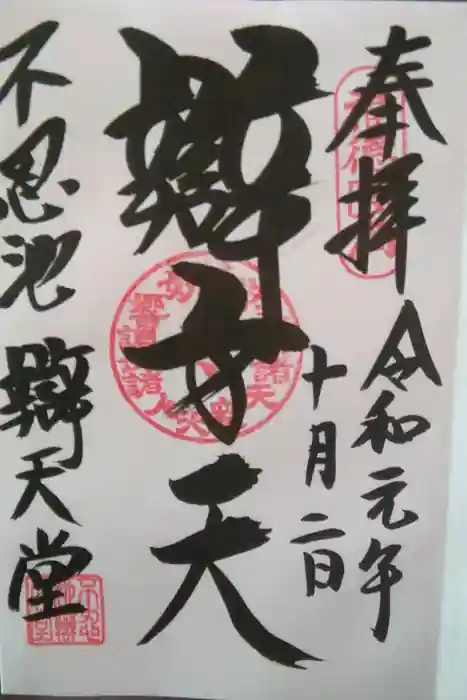 奉拝
令和元年
十月二日
辯才天
不忍池
辯天堂